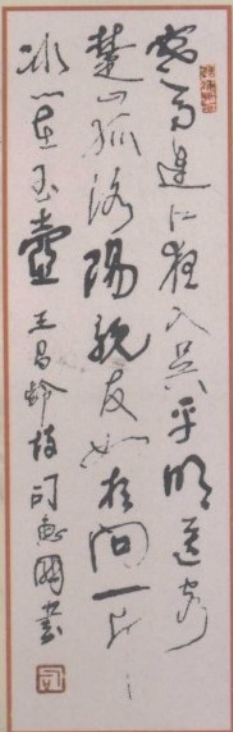 寒雨連江夜入吳平明送客
楚山孤洛陽親友如相問一片
冰心在玉壺 王昌齡詩 司 國書